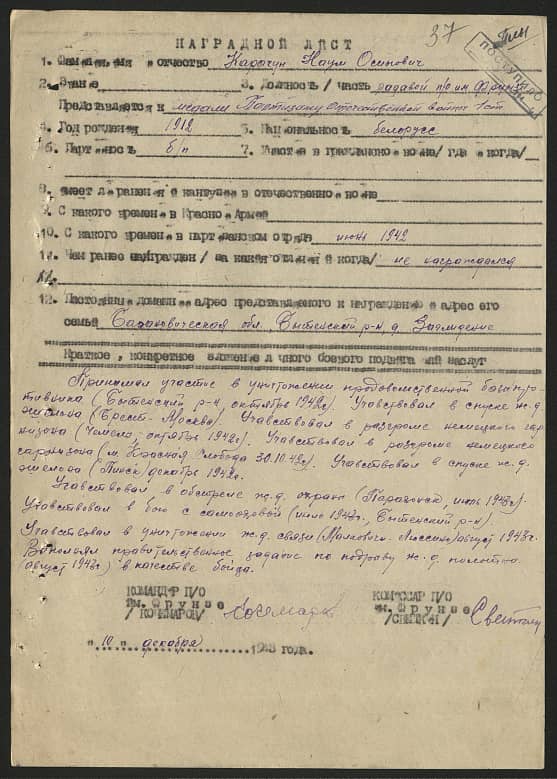 37
ПОСТУПИЛО
НАГРАДНОЙ ЛИСТ
1. Фамилия имя и отчество Карачун Наум Осипович
2. Звание 3. Должность / часть рядовой п/о им. Фрунзе
Представляется к медали Партизану отечественной войны 1 ст
4. Год рождения 1912 5. Национальность белорусс
6. Партийность б/п 7. Участие в гражданской войне /где и когда/
8. Имеет ли ранения и контузии в отечественной войне
9. С какого времени в Красной Армии
10. С какого времени в партизанском отряде июнь 1942
11. Чем ранее награжден /за какие отличия и когда/ не награждался
12. Постоянный домашний адрес представляемого к награждению и адрес его
семьи Барановическая обл. Бытенский р-н д.
Краткое, конкретное изложение личного боевого подвига или заслуг
Принимал участие в уничтожении продовольственной базы про-
тивника (Бытенский р-н, октябрь 1942г). Учавствовал в спуске ж.д.
эшелона (Брест-Москва). Учавствовал в разгроме немецкого гар-
низона (Чемелы, октябрь 1942г). Учавствовал в разгроме немецкого
гарнизона (м. Красная Слобода 30.10.42г). Учавствовал в спуске ж.д.
эшелона (Пинск, декабрь 1942г.
Учавствовал в обстреле ж.д. охраны (Парахонск, июнь 1943г)
Учавствовал в бою с самооховой (июль 1943г., Бытенский р-н)
Учавствовал в уничтожении ж.д. связи (Мальковичи- август 1943г.
Выполнял правительственное задание по подрыву ж.д. полотна
(август 1943г) в качестве бойца.
КОМАНДИР П/О КОМИССАР П/О
им. Фрунзе им. Фрунзе
"10" декабря 1943 года.